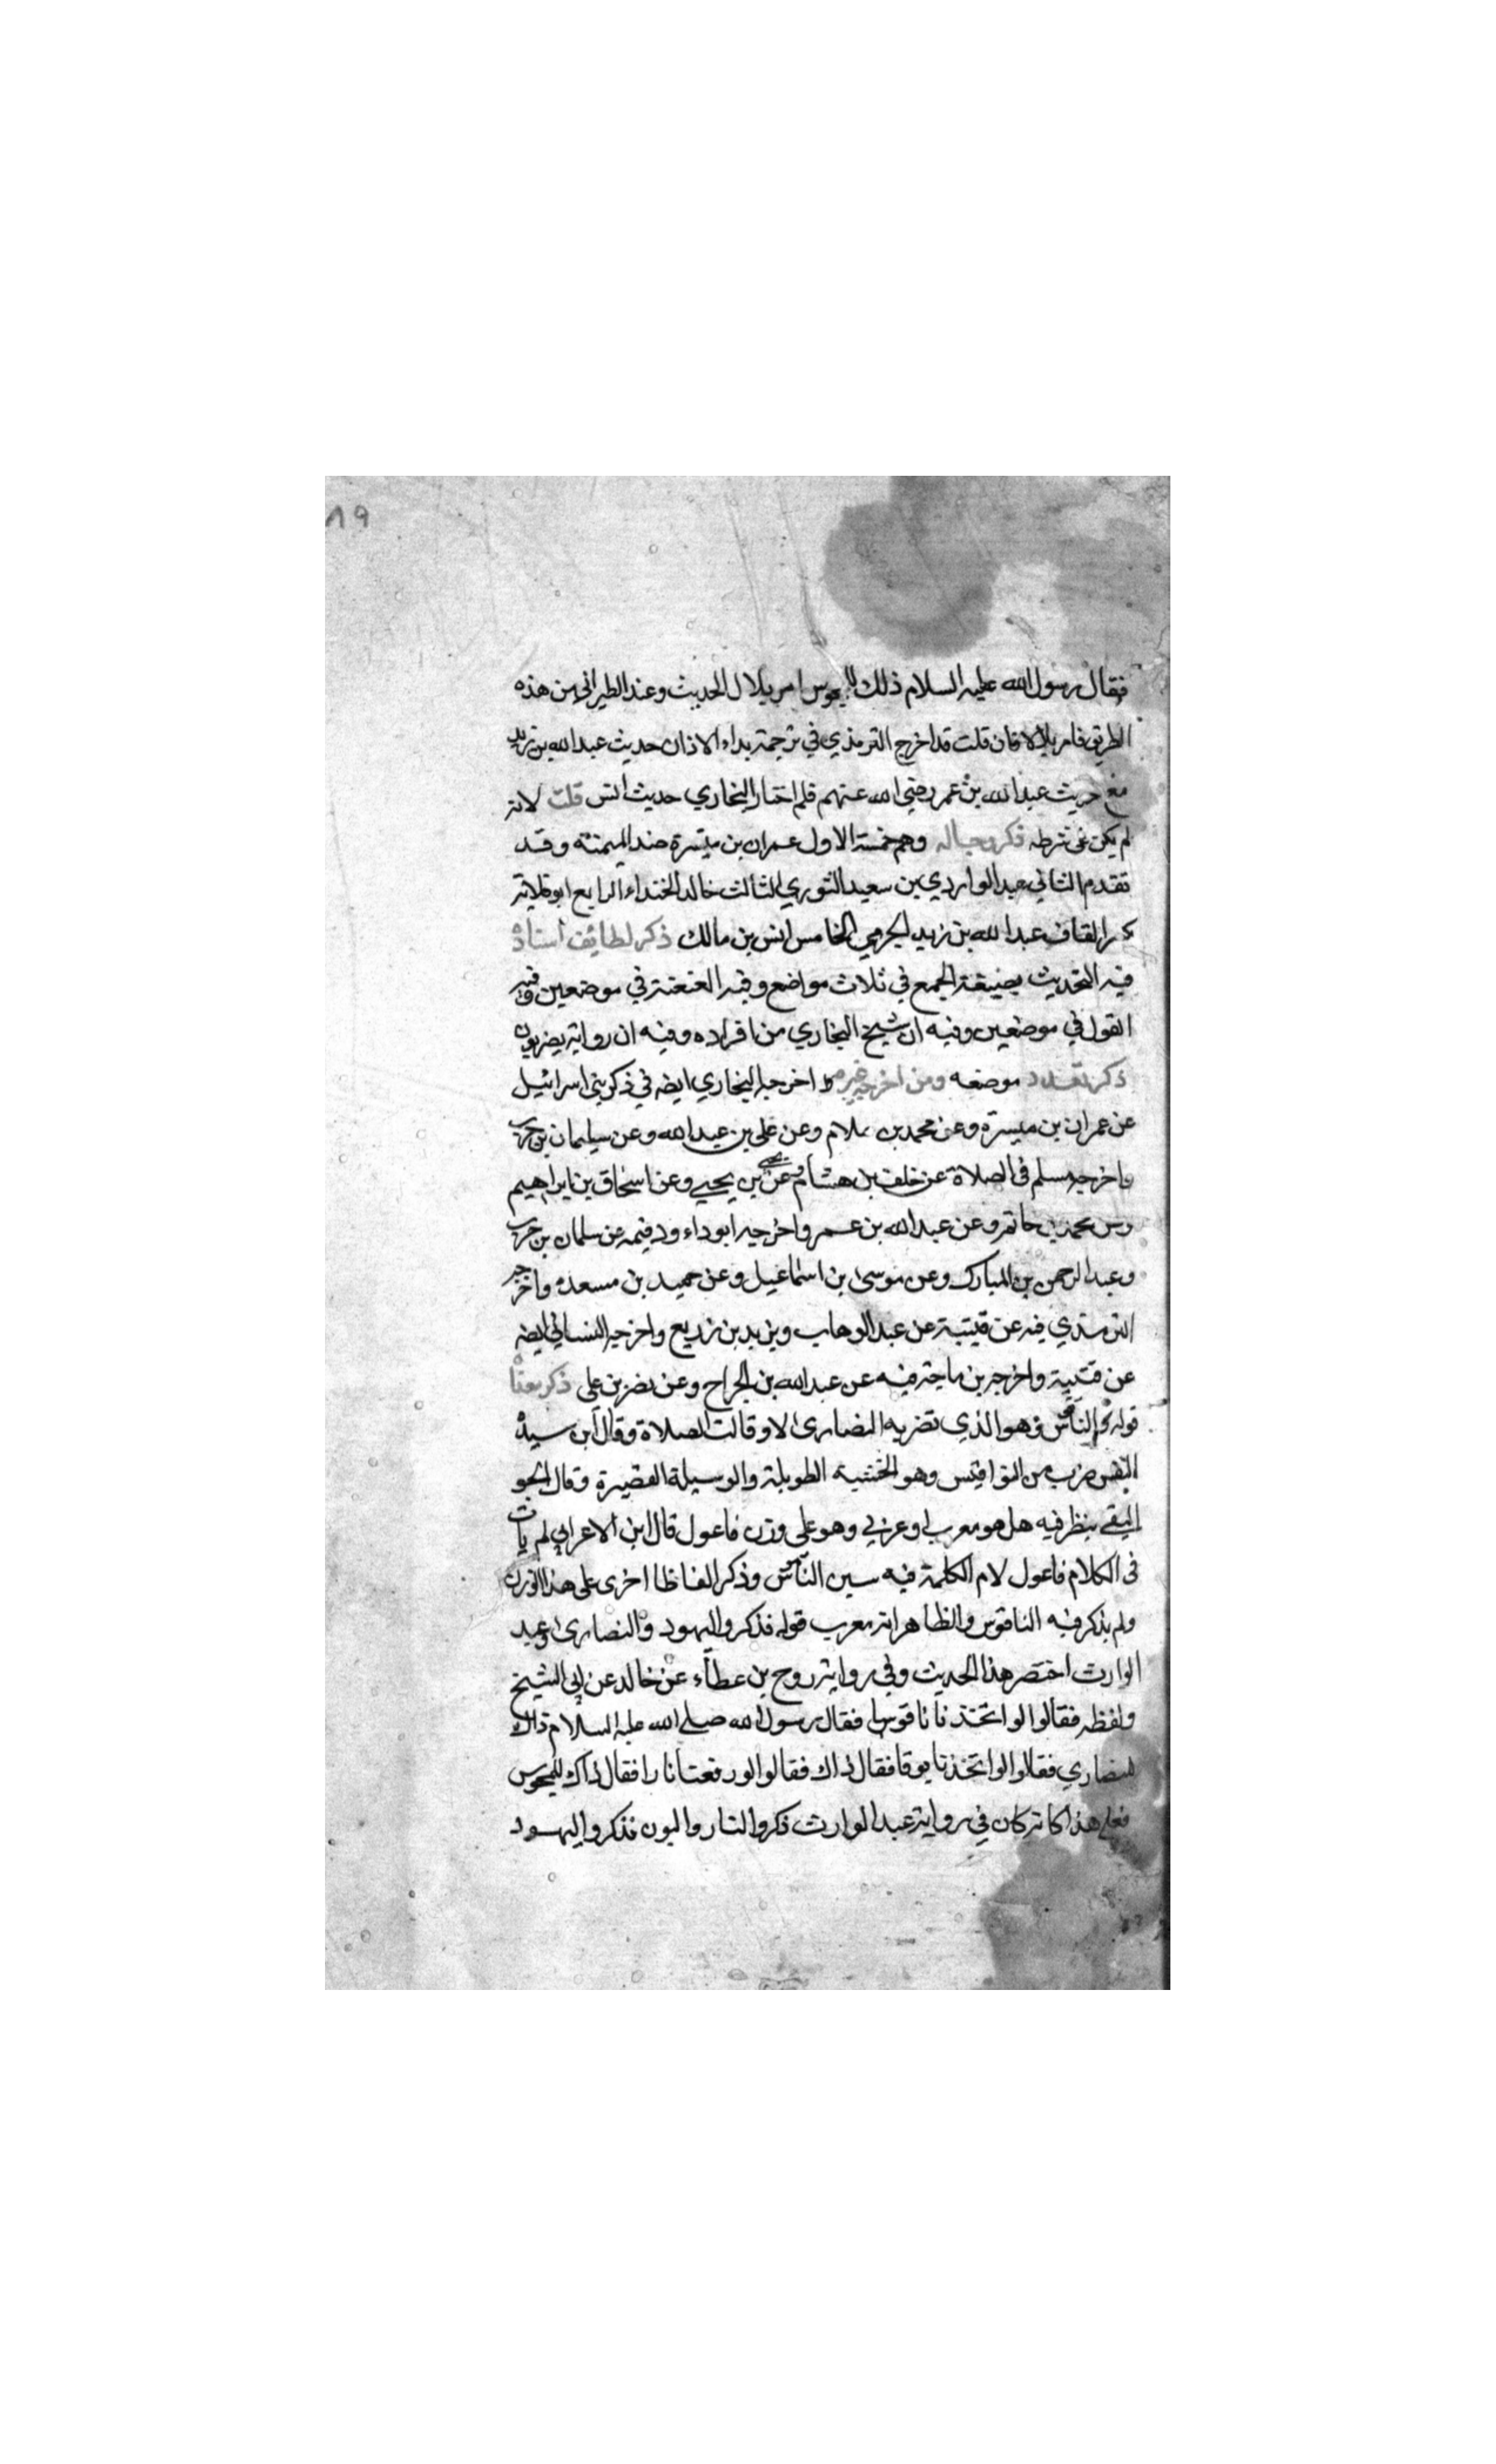 ٨٩
فقال رسول الله عليه السلام ذلك للمجوس امر بلال الحديث وعند الطبراني من هذه
الطريق فامر بلالا فان قلت قد اخرج الترمذي في ترجمة بداء الاذان حديث عبد الله بن زيد
مع حديث عبد الله بن عمر رضي الله عنهم فلم اختار البخاري حديث انس قلت لانه
لم يكن على شرطه ذكر رجاله وهم خمسة الاول عمران بن ميسرة ضد الميمنة وقد
تقدم الثاني عبد الواردي بن سعيد التنوري الثالث خالد الحذاء الرابع ابو قلابة
بكسر القاف عبد الله بن زيد الجرمي الخامس انس بن مالك ذكر لطائف اسناده
فيه التحديث بصيغة الجمع في ثلاث مواضع وفيه العنعنة في موضعين وفيه
القول في موضعين وفيه ان شيخ البخاري من افراده وفيه ان رواية بصريون
ذكر تعدد موضعه ومن اخرجه غيره اخرجه البخاري ايضه في ذكر بني اسرائيل
عن عمران بن ميسرة وعن محمد بن سلام وعن علي بن عبد الله وعن سليمان بن حرب
واخرجه مسلم في الصلاة عن خلف بن هشام وعن يحيى بن يحيى وعن اسحاق بن ابراهيم
وعن محمد بن حاتم وعن عبد الله بن عمر واخرجه ابو داءود فيه عن سلمان بن حرب
وعبد الرحمن بن المبارك وعن موسى بن اسماعيل وعن حميد بن مسعدة واخرجه
الترمذي فيه عن قتيبة عن عبد الوهاب ويزيد بن زريع واخرجه النسائي ايضه
عن قتيبة واخرجه بن ماجة فيه عن عبد الله بن الجراح وعن نصر بن علي ذكر معناه
قوله الناقوس وهو الذي تضربه النصارى لاوقات الصلاة وقال ابن سيده
النقس ضرب من النواقيس وهو الخشبة الطويلة والوسيلة القصيرة وقال الجو
اليقي ينظر فيه هل هو معرب او عربي وهو على وزن فاعول قال ابن الاعرابي لم يات
في الكلام فاعول لام الكلمة فيه سين الناقوس وذكر الفاظا اخرى على هذا الوزن
ولم يذكر فيه الناقوس والظاهر انه معرب قوله فذكروا اليهود والنصارى وعبد
الوارث اختصر هذا الحديث وفي رواية روح بن عطاء عن خالد عن ابي الشيخ
ولفظه فقالوا لو اتخذنا ناقوسا فقال رسول الله صلى الله عليه السلام ذاك
للنصاري فقالوا لو اتخذنا بوقا فقال ذاك فقالوا لو رفعنا نارا فقال ذاك للمجوس
فعلى هذا كانه كان في رواية عبد الوارث ذكروا النار والبون فذكروا اليهود